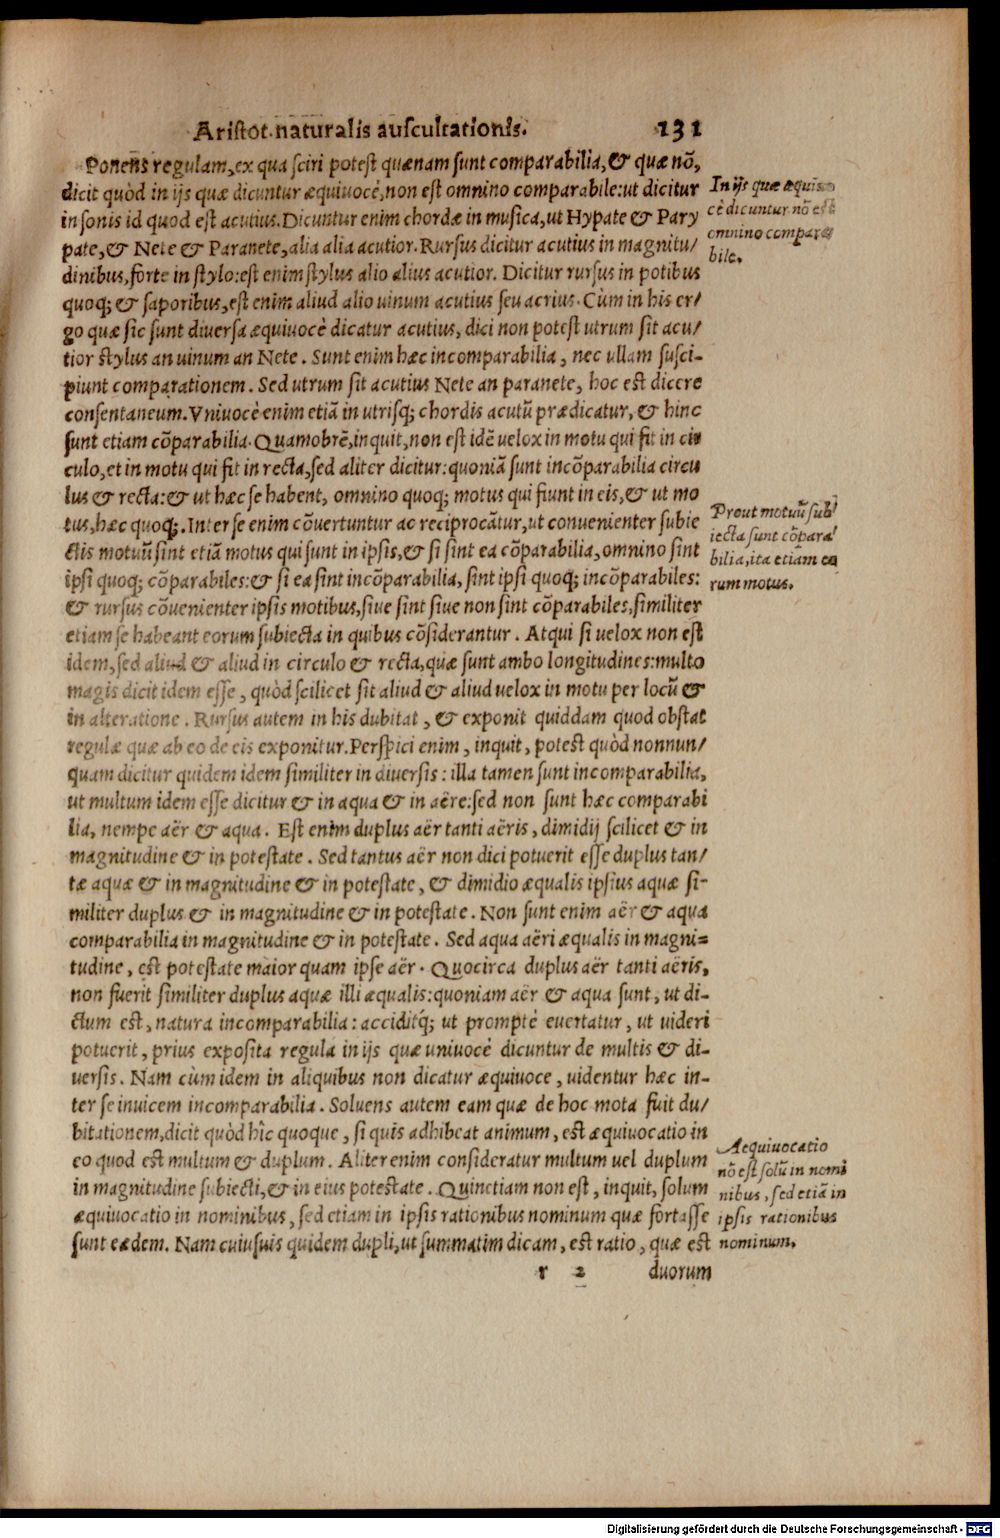 Aristot. naturalis auscultationis. 131
Ponens regulam, ex qua sciri potest quænam sunt comparabilia, & quæ nō,
dicit quòd in ijs quæ dicuntur æquiuocè, non est omnino comparabile: ut dicitur
in sonis id quod est acutius. Dicuntur enim chordæ in musica, ut Hypate & Pary
pate, & Nete & Paranete, alia alia acutior. Rursus dicitur acutius in magnitu/
dinibus, forte in stylo: est enim stylus alio alius acutior. Dicitur rursus in potibus
quoq; & saporibus, est enim aliud alio uinum acutius seu acrius. Cùm in his er/
go quæ sic sunt diuersa æquiuocè dicatur acutius, dici non potest utrum sit acu/
tior stylus an uinum an Nete. Sunt enim hæc incomparabilia, nec ullam susci-
piunt comparationem. Sed utrum sit acutius Nete an paranete, hoc est dicere
consentaneum. Vniuocè enim etiā in utrisq; chordis acutū prædicatur, & hinc
sunt etiam cōparabilia. Quamobrē, inquit, non est idē uelox in motu qui fit in cir
culo, et in motu qui fit in recta, sed aliter dicitur: quoniā sunt incōparabilia circu
lus & recta: & ut hæc se habent, omnino quoq; motus qui fiunt in eis, & ut mo
tus, hæc quoq;. Inter se enim cōuertuntur ac reciprocātur, ut conuenienter subie
ctis motuū sint etiā motus qui sunt in ipsis, & si sint ea cōparabilia, omnino sint
ipsi quoq; cōparabiles: & si ea sint incōparabilia, sint ipsi quoq; incōparabiles:
& rursus cōuenienter ipsis motibus, siue sint siue non sint cōparabiles, similiter
etiam se habeant eorum subiecta in quibus cōsiderantur. Atqui si uelox non est
idem, sed aliud & aliud in circulo & recta, quæ sunt ambo longitudines: multo
magis dicit idem esse, quòd scilicet sit aliud & aliud uelox in motu per locū &
in alteratione. Rursus autem in his dubitat, & exponit quiddam quod obstat
regulæ quæ ab eo de eis exponitur. Perspici enim, inquit, potest quòd nonnun/
quam dicitur quidem idem similiter in diuersis: illa tamen sunt incomparabilia,
ut multum idem esse dicitur & in aqua & in aëre: sed non sunt hæc comparabi
lia, nempe aër & aqua. Est enim duplus aër tanti aëris, dimidij scilicet & in
magnitudine & in potestate. Sed tantus aër non dici potuerit esse duplus tan/
tæ aquæ & in magnitudine & in potestate, & dimidio æqualis ipsius aquæ si-
militer duplus & in magnitudine & in potestate. Non sunt enim aër & aqua
comparabilia in magnitudine & in potestate. Sed aqua aëri æqualis in magni=
tudine, est potestate maior quam ipse aër. Quocirca duplus aër tanti aëris,
non fuerit similiter duplus aquæ illi æqualis: quoniam aër & aqua sunt, ut di-
ctum est, natura incomparabilia: acciditq́; ut promptè euertatur, ut uideri
potuerit, prius exposita regula in ijs quæ uniuocè dicuntur de multis & di-
uersis. Nam cùm idem in aliquibus non dicatur æquiuoce, uidentur hæc in-
ter se inuicem incomparabilia. Soluens autem eam quæ de hoc mota fuit du/
bitationem, dicit quòd hîc quoque, si quis adhibeat animum, est æquiuocatio in
eo quod est multum & duplum. Aliter enim consideratur multum uel duplum
in magnitudine subiecti, & in eius potestate. Quinetiam non est, inquit, solum
æquiuocatio in nominibus, sed etiam in ipsis rationibus nominum quæ fortasse
sunt eædem. Nam cuiusuis quidem dupli, ut summatim dicam, est ratio, quæ est
r 2 duorum
In ijs quæ æquiuo
cè dicuntur nō est
omnino compara
bile.
Prout motuū sub/
iecta sunt cōpara/
bilia, ita etiam eo
rum motus.
Aequiuocatio
nō est solū in nomi
nibus, sed etiā in
ipsis rationibus
nominum.
Digitalisierung gefördert durch die Deutsche Forschungsgemeinschaft - DFG